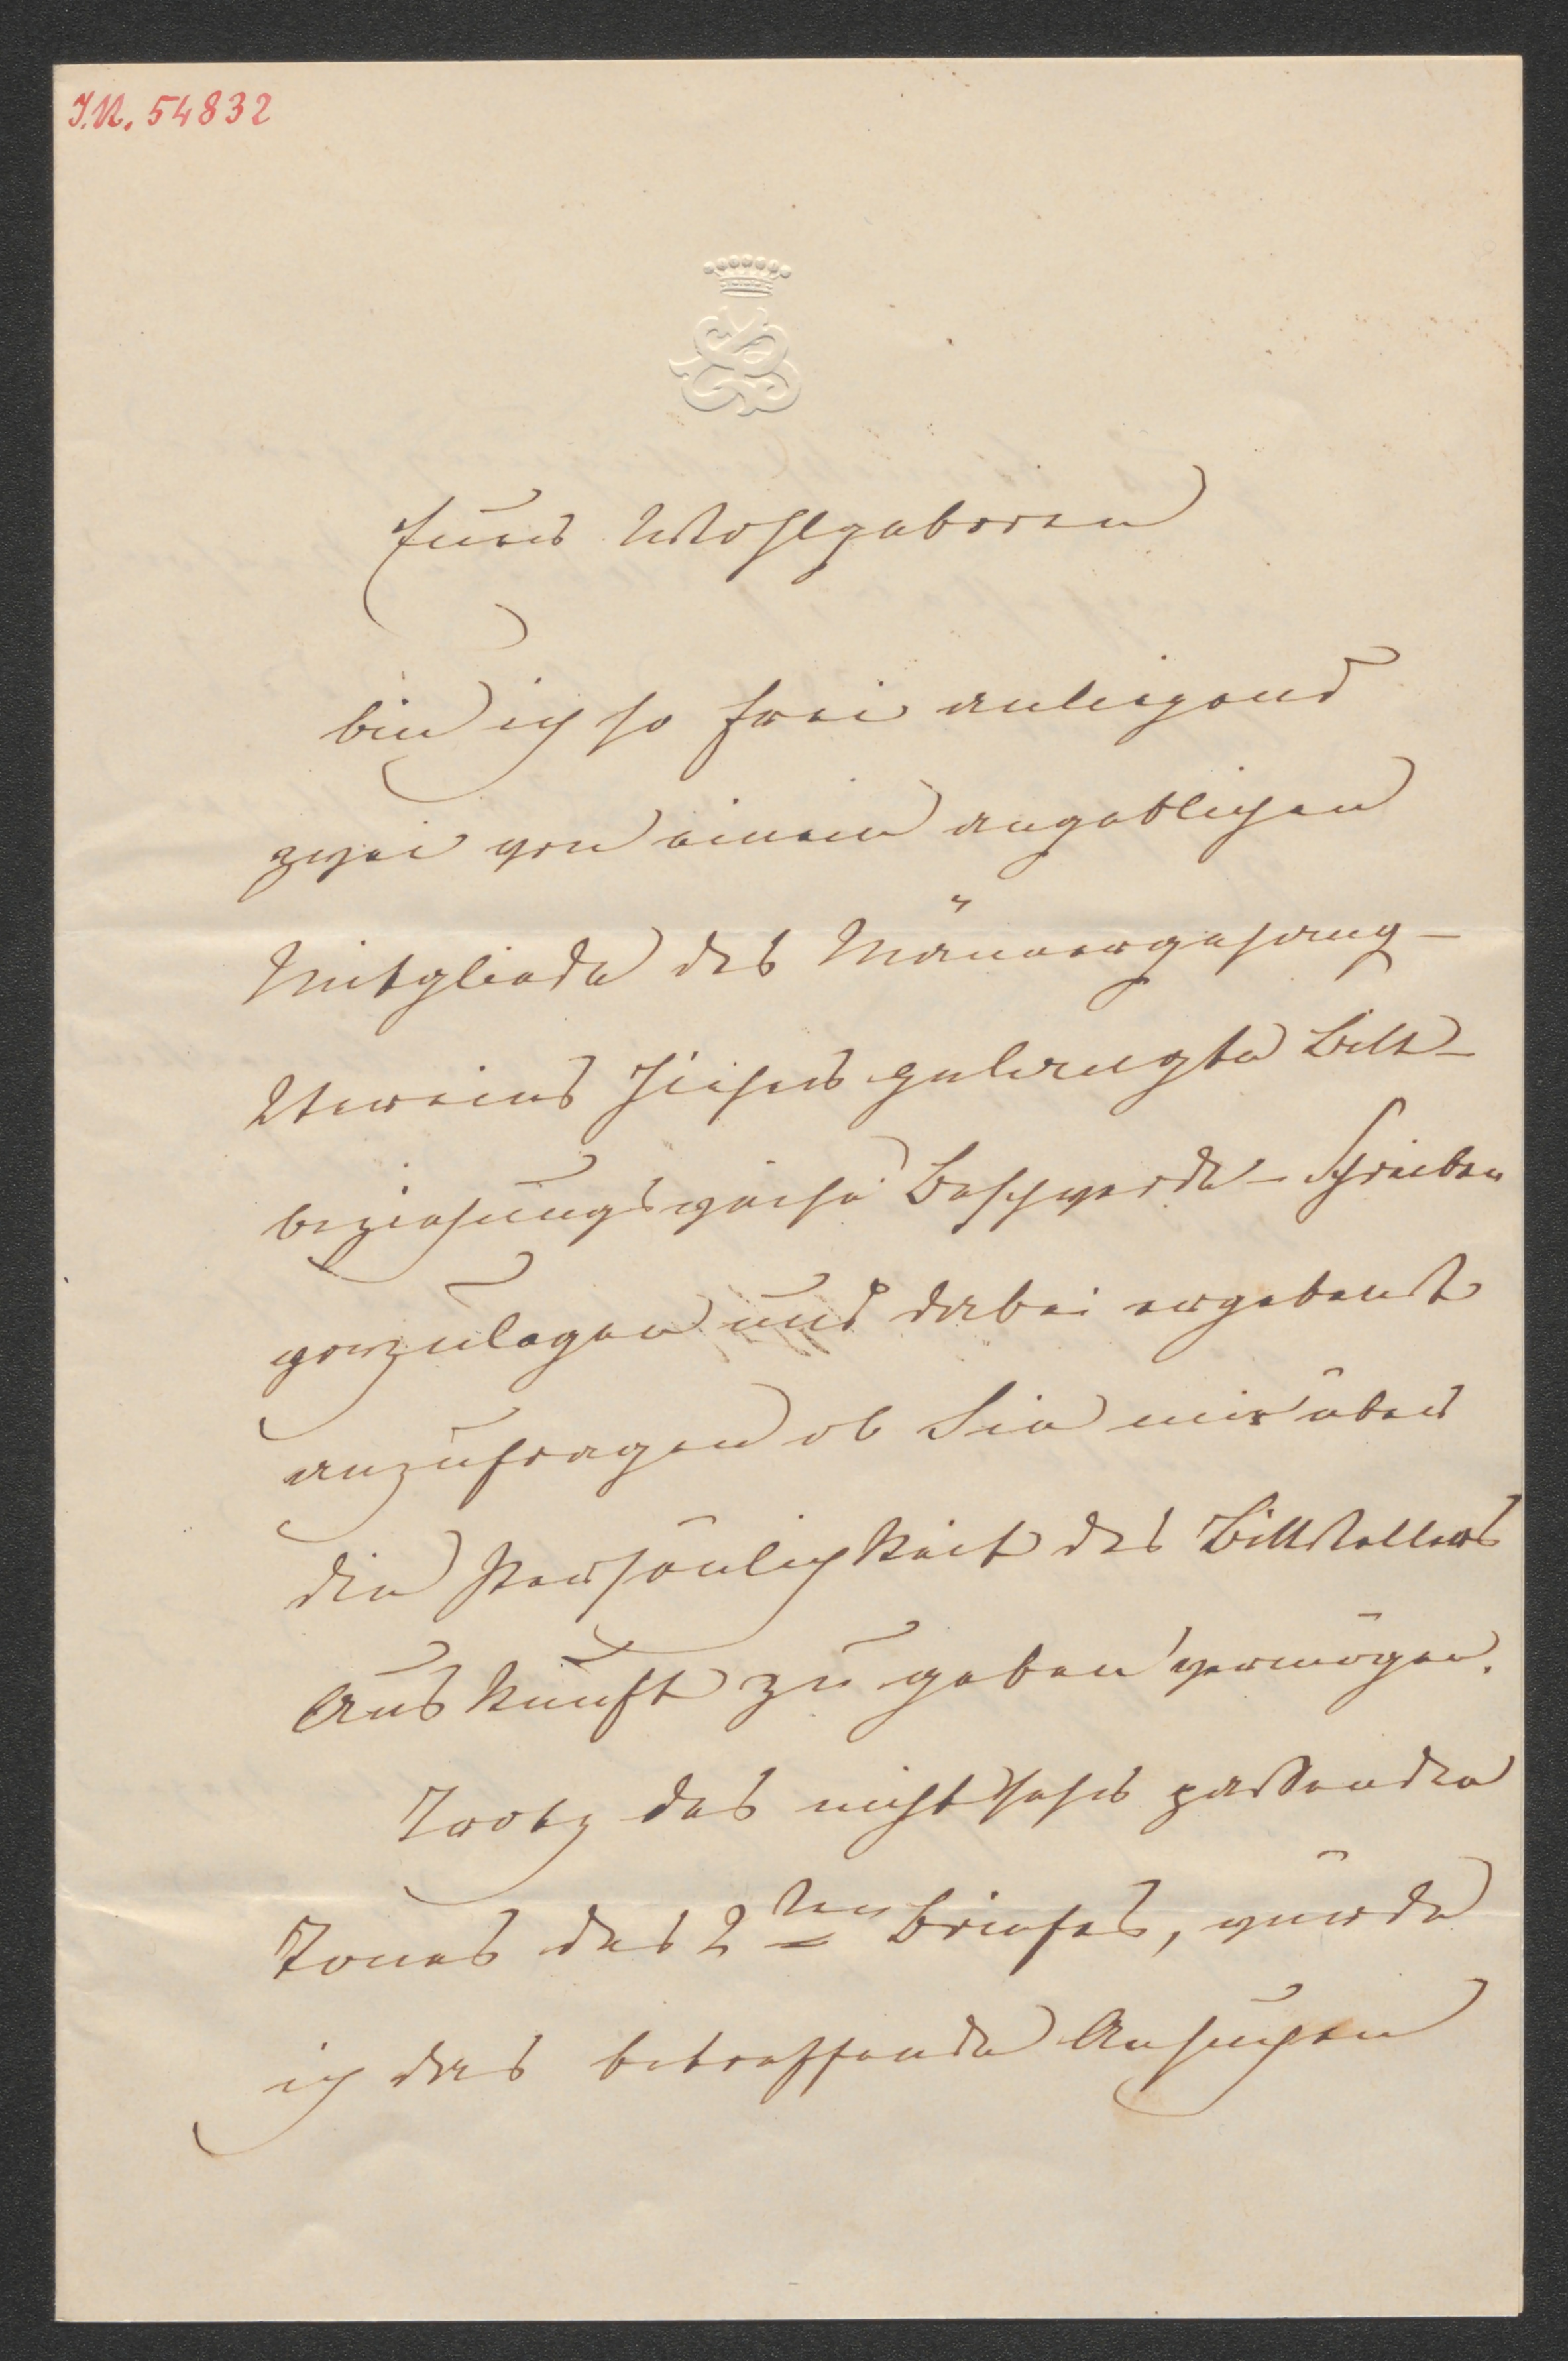 I.N. 54832
Euer Wohlgeboren
bin ich so frei anliegend
zwei von einem angeblichen
Mitgliede des Männergesang-
Vereins hieher gelangte Bitt-
beziehungsweise Beschwerde-Schreiben
vorzulegen und dabei ergebenst
anzufragen ob Sie mir über
die Persönlichkeit des Bittstellers
Auskunft zu geben vermögen.
Trotz des nicht sehr passenden
Tones des 2ten Briefes, würde
ich das betreffende Ansuchen